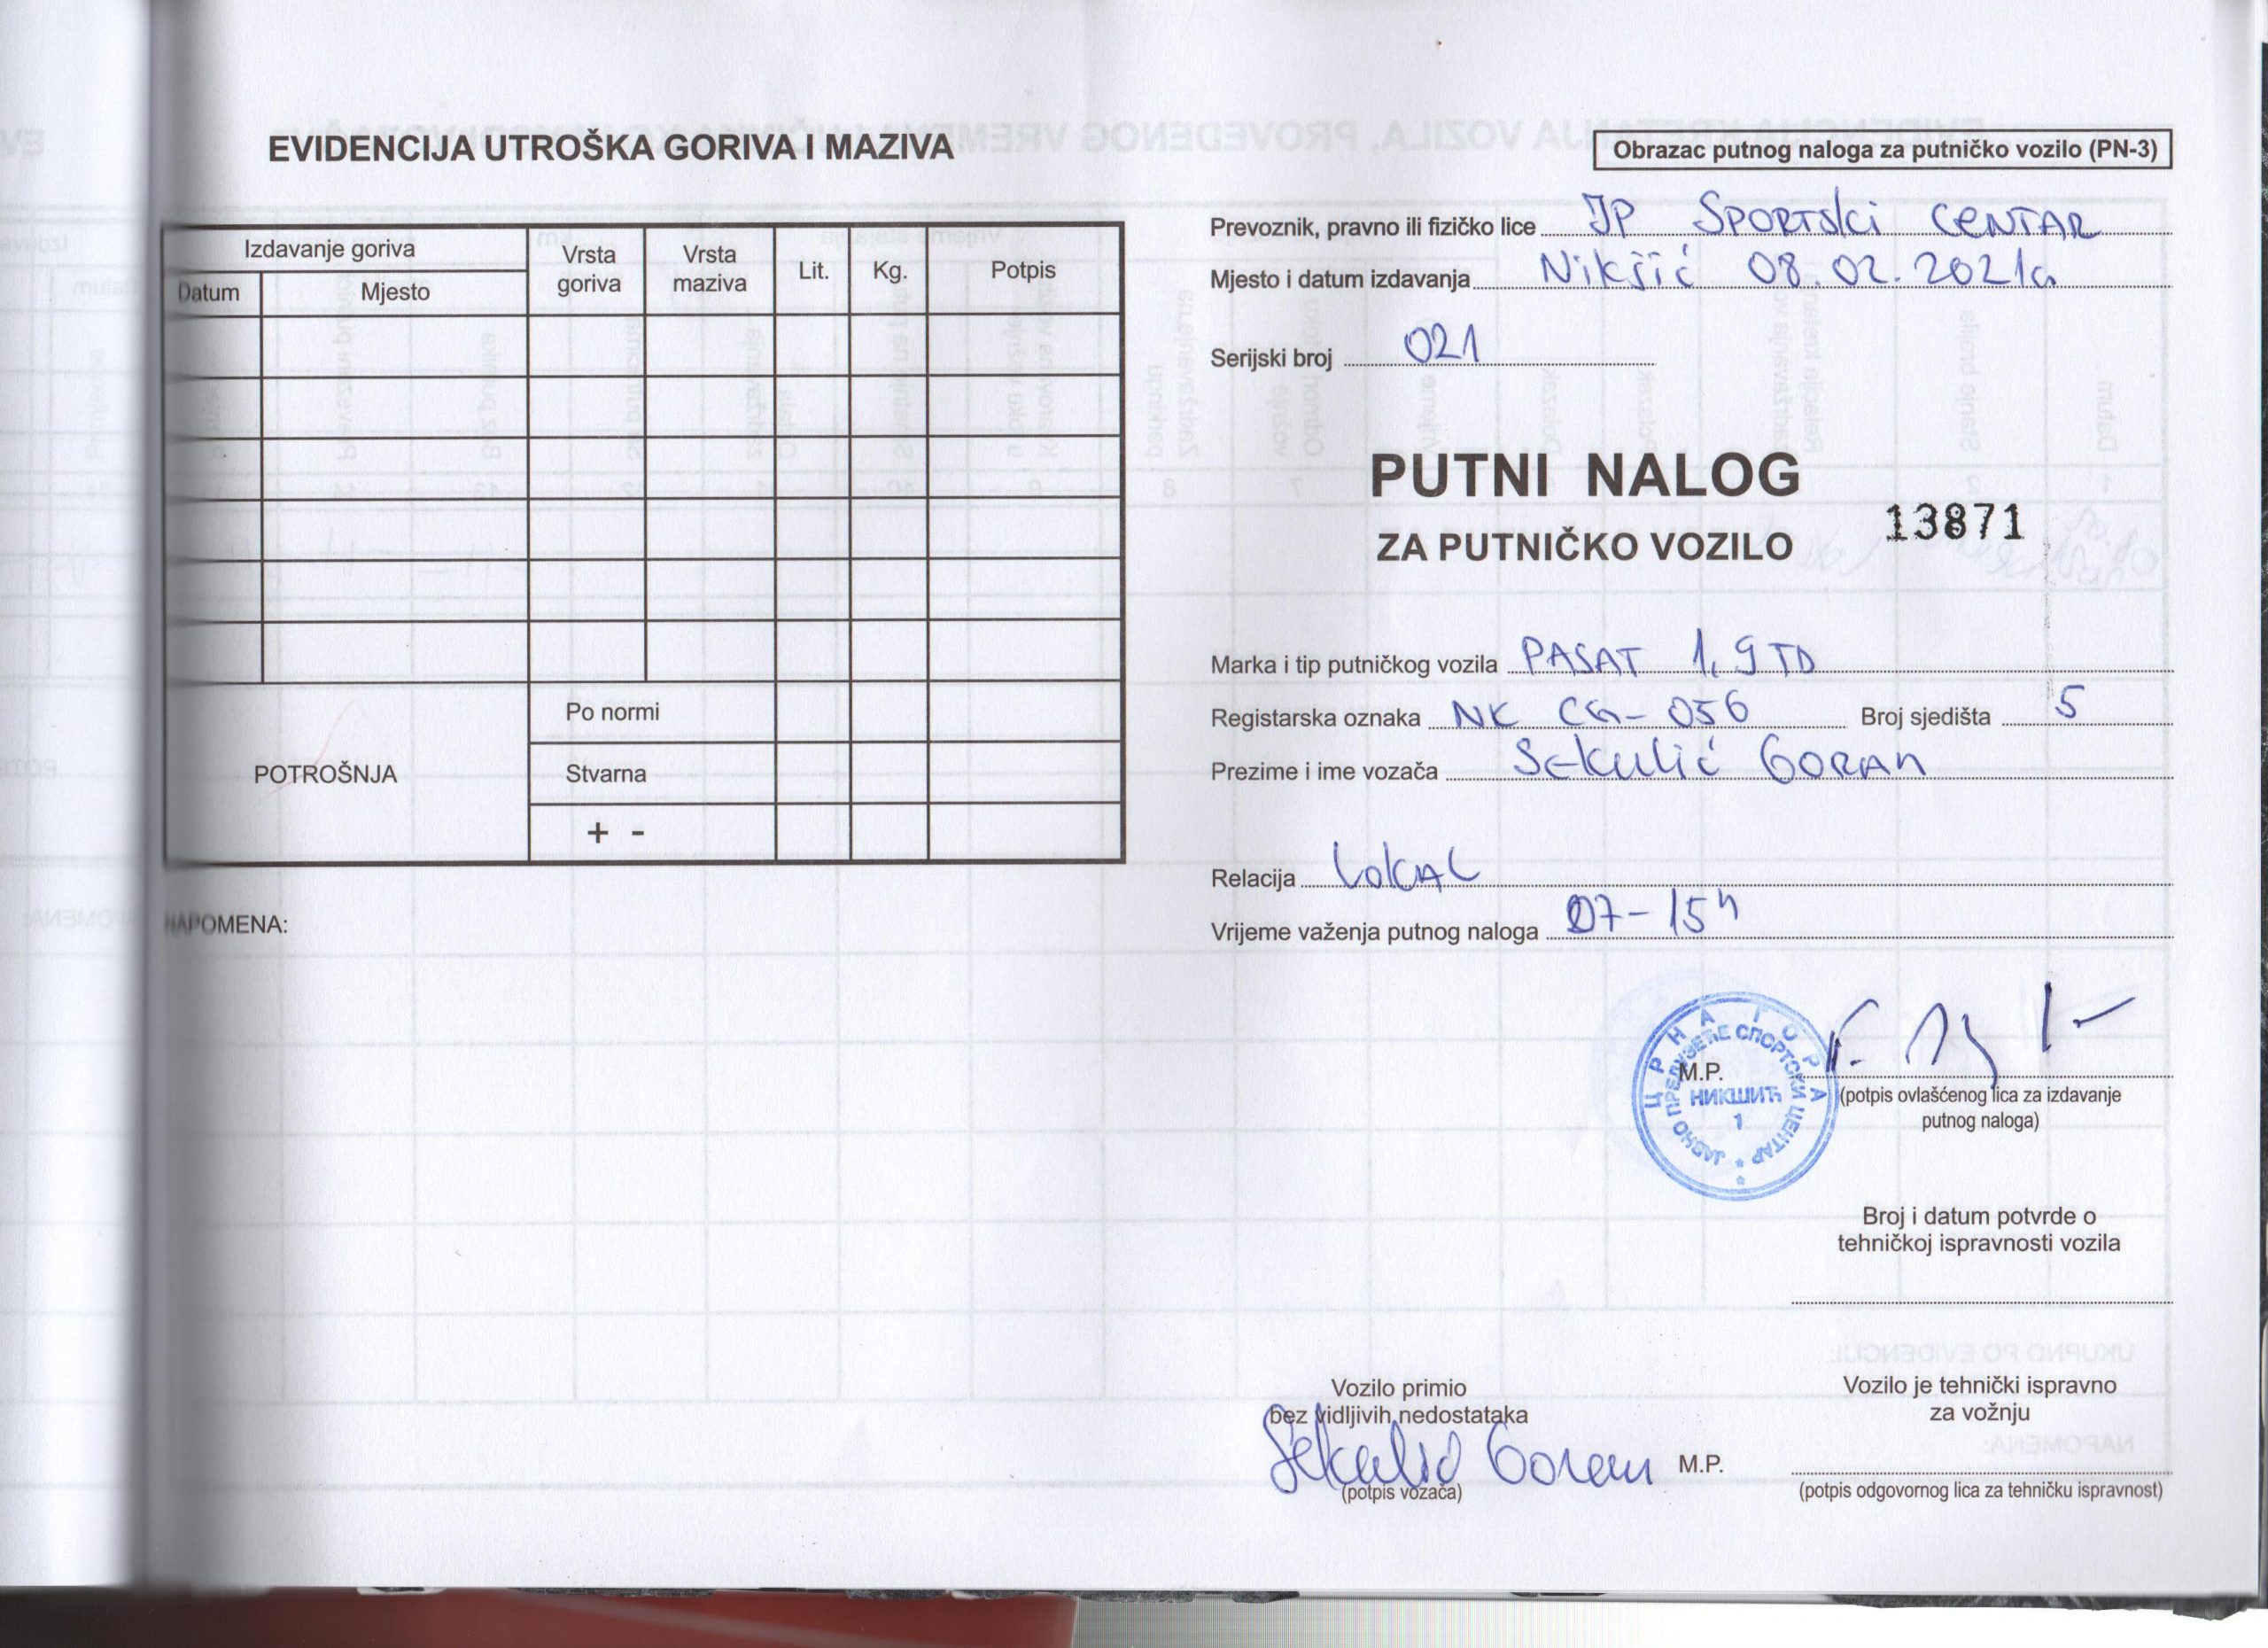 EVIDENCIJA UTROŠKA GORIVA I MAZIVA
Izdavanje goriva
Datum
Mjesto
Vrsta goriva
Vrsta maziva
Lit.
Kg.
Potpis
POTROŠNJA
Po normi
Stvarna
+ -
NAPOMENA:
Obrazac putnog naloga za putničko vozilo (PN-3)
Prevoznik, pravno ili fizičko lice JP SPORTSKI CENTAR
Mjesto i datum izdavanja Nikšić 08.02.2021G
Serijski broj 021
PUTNI NALOG
ZA PUTNIČKO VOZILO
13871
Marka i tip putničkog vozila PASAT 1,9 TD
Registarska oznaka NK CG-056 Broj sjedišta 5
Prezime i ime vozača Sekulić Goran
Relacija LOKAL
Vrijeme važenja putnog naloga 07-15h
ЦРНА ГОРА
ЈАВНО ПРЕДУЗЕЋЕ СПОРТСКИ ЦЕНТАР
НИКШИЋ
1
M.P.
(potpis ovlašćenog lica za izdavanje
putnog naloga)
Broj i datum potvrde o
tehničkoj ispravnosti vozila
Vozilo primio
bez vidljivih nedostataka
Sekulić Goran
(potpis vozača)
M.P.
Vozilo je tehnički ispravno
za vožnju
(potpis odgovornog lica za tehničku ispravnost)